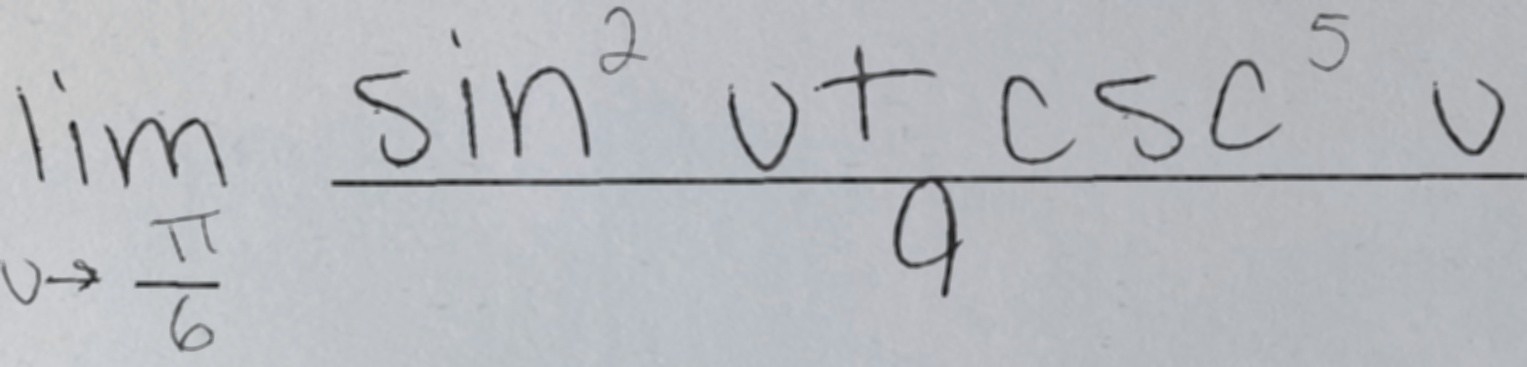 \lim_{v \to \frac{\pi}{6}} \frac{\sin^2 v + \csc^5 v}{9}